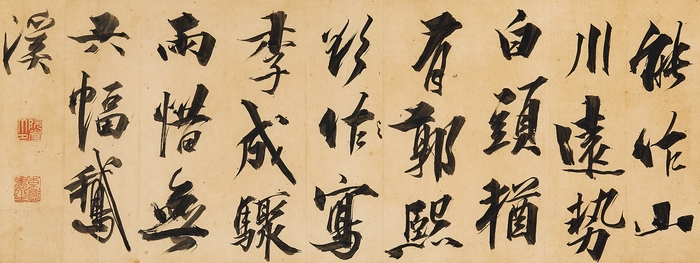 能作山
川遠勢
白頭猶
有郭熙
欲作寫
李成驟
雨惜無
六幅鵝
溪